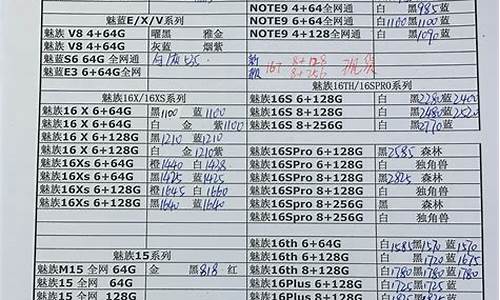 NOTE9 4+64全网通 白 黑985蓝
魅蓝E/X/V系列 NOTE9 6+64全网通 白1100黑1100蓝
魅族 V8 4+64G 曜黑 雅金 NOTE9 4+128全网通 白 黑1090蓝
魅族 V8 4+64G 灰蓝 烟紫
魅蓝S6 64G 全网通
魅蓝E3 6+64G全网通
16T 8+128
8+256
魅族16X/16XS系列 魅族16TH/16SPRO系列
魅族16 X 6+64G 黑1100 蓝1100 魅族16S 6+128G 白 黑2280蓝2400
魅族16 X 6+64G 白 金 紫1100 魅族16S 8+128G 白 黑2480蓝2520
魅族16 X 6+128G 黑1210 蓝1210 魅族16S 8+256G 白 黑2770蓝
魅族16 X 6+128G 白 金 1210紫
魅族16Xs 6+64G 橙1440 白1428 魅族16SPro 6+128G 黑2585 森林
魅族16Xs 6+64G 黑1425 蓝1425 魅族16SPro 6+128G 白 独角兽
魅族16Xs 6+128G 橙1645 白1660 魅族16SPro 8+128G 黑2825 森林
魅族16Xs 6+128G 黑1640 蓝1640 魅族16SPro 8+128G 白 独角兽
魅族16SPro 8+256G 黑 森林
魅族16SPro 8+256G 白 独角兽
魅族16th 6+64G 白1585黑1570蓝1570
魅族15系列 魅族16th 6+128G 白 黑1720蓝1675
魅族M15 全网 64G 金 黑818 红 魅族16th 8+128G 白1780黑1780蓝1780
魅族15 全网 64G 魅族16Plus 6+128G 白1725黑1725蓝
魅族15 全网 128G 魅族16Plus 8+128G